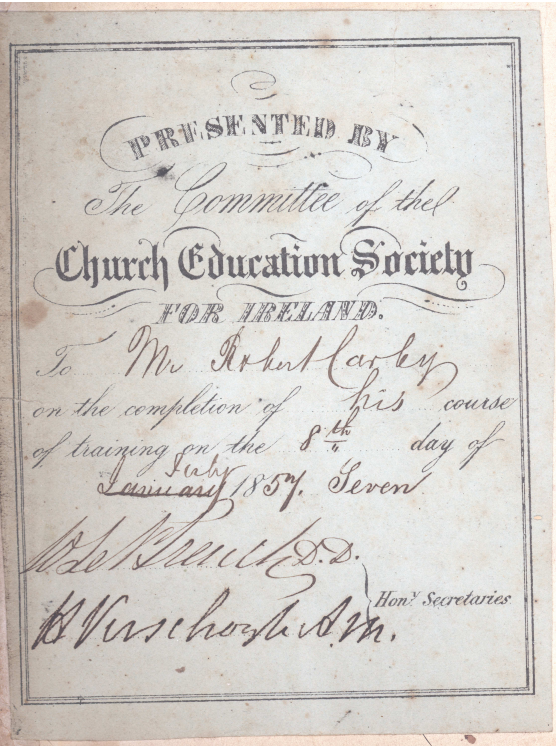 PRESENTED BY
The Committee of the
Church Education Society
FOR IRELAND.
To Mr Robert Carby
on the completion of his course
of training on the 8th day of
July
January 1857. Seven
D.D.
Hony Secretaries
H Verschoyle A.M.